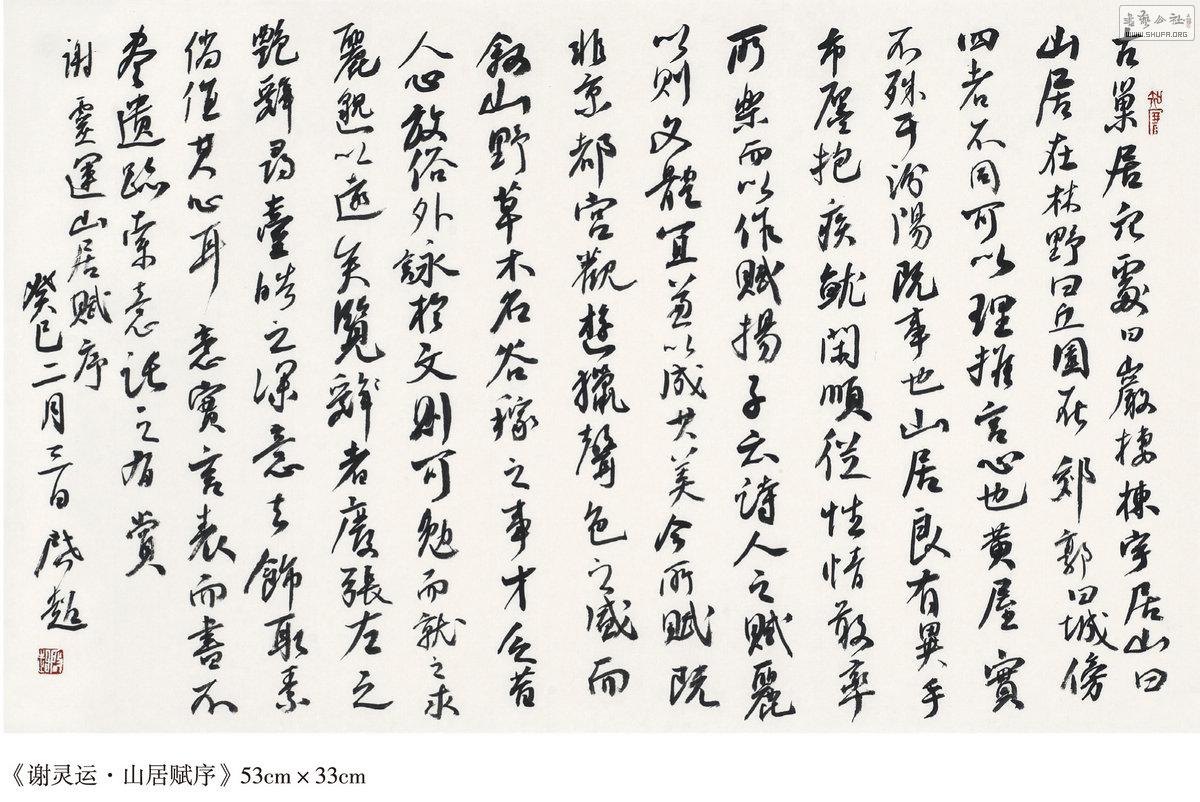 古巢居穴處曰巖棲棟宇居山曰
山居在林野曰丘園在郊郭曰城傍
四者不同可以理推言心也黄屋實
不殊于汾陽既事也山居良有異乎
市廛抱疾就閑順從性情敢率
所樂而以作賦揚子云詩人之賦麗
以則文體宜兼以成其美今所賦既
非京都宮觀遊獵聲色之盛而
敘山野草木石谷稼之事才乏昔
人心放俗外詠於文則可勉而就之求
麗邈以遠矣覽辭者廢張左之
艷辭尋臺皓之深意去飾取素
倘值其心耳意實言表而書不
盡遺跡索意託之有賞
謝靈運山居賦序
癸巳二月三日啟超
书艺公社
WWW.SHUFA.ORG
《谢灵运·山居赋序》53cm × 33cm